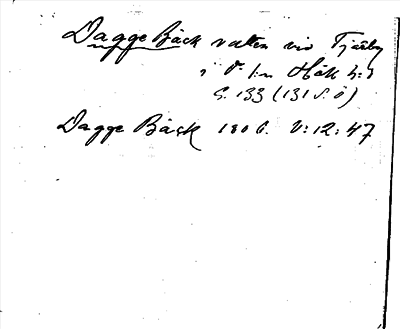 Dagge Bäck vatten vid Tjärby
i V. l:n Hök h:d
S. 133 (131 S. Ö)
Dagge Bäck 1806. V: 12: 47